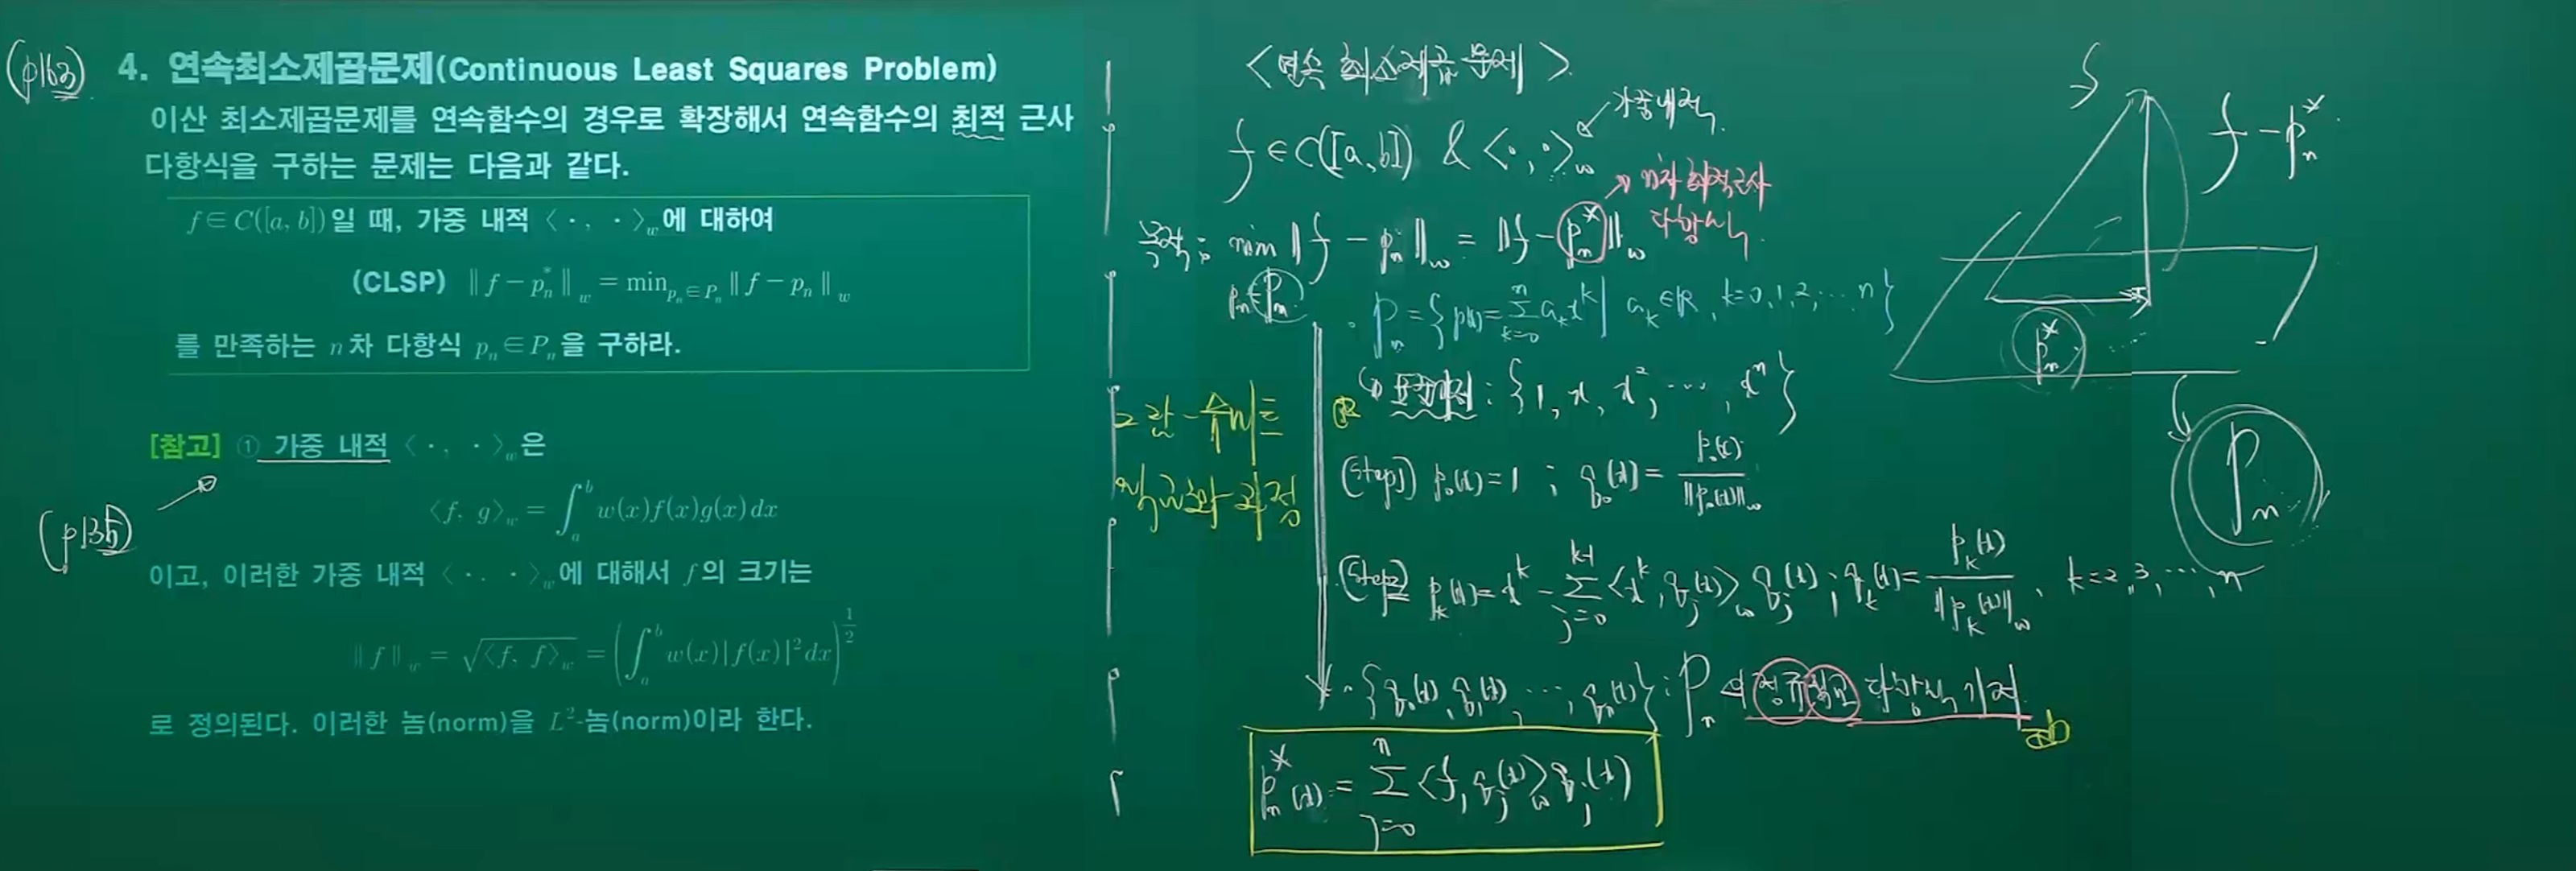 (p163)
4. 연속최소제곱문제(Continuous Least Squares Problem)
이산 최소제곱문제를 연속함수의 경우로 확장해서 연속함수의 최적 근사
다항식을 구하는 문제는 다음과 같다.
f∈C([a, b])일 때, 가중 내적 〈·, ·〉_w에 대하여
(CLSP) ‖f − p_n^*‖_w = min_{p_n∈P_n}‖f − p_n‖_w
를 만족하는 n차 다항식 p_n∈P_n을 구하라.
[참고] ① 가중 내적 〈·, ·〉_w은
(p135)
〈f, g〉_w = ∫_a^b w(x)f(x)g(x)dx
이고, 이러한 가중 내적 〈·. ·〉_w에 대해서 f의 크기는
‖f‖_w = √〈f, f〉_w = (∫_a^b w(x)|f(x)|²dx)^{1/2}
로 정의된다. 이러한 놈(norm)을 L²-놈(norm)이라 한다.
<연속 최소제곱 문제>
f∈C([a,b]) & <·,·>_w
가중내적
목적: min ‖f − p_n‖_w = ‖f − p_n^*‖_w
p_n∈P_n
n차 최적근사
다항식
P_n = {p(x)=∑_{k=0}^n a_k x^k | a_k∈ℝ, k=0,1,2,…n}
표준기저 : {1, x, x², …, x^n}
그람-슈미트
직교화 과정
(Step1) p_0(x)=1 ; q_0(x) = p_0(x)/‖p_0(x)‖_w
(Step2) p_k(x) = x^k − ∑_{j=0}^{k-1}<x^k, q_j(x)>_w q_j(x) ; q_k(x) = p_k(x)/‖p_k(x)‖_w, k=2,3,…,n
{q_0(x), q_1(x), …, q_n(x)} : P_n의 정규직교 다항식 기저
p_n^*(x) = ∑_{j=0}^n <f, q_j(x)>_w q_j(x)
f
f − p_n^*
p_n^*
P_n